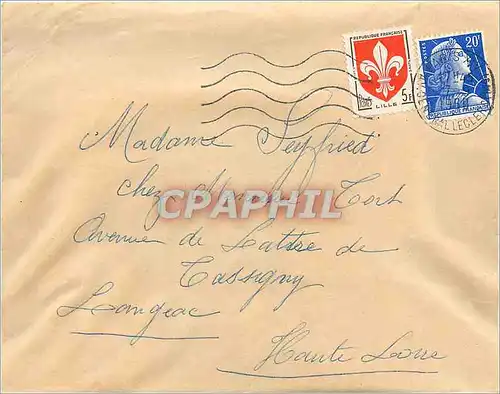 REPUBLIQUE FRANÇAISE
5F
LILLE
20F
REPUBLIQUE FRANÇAISE
Madame Seyfried
chez Monsieur Tort
CPAPHIL
Avenue de Lattre de
Tassigny
Langeac
Haute Loire